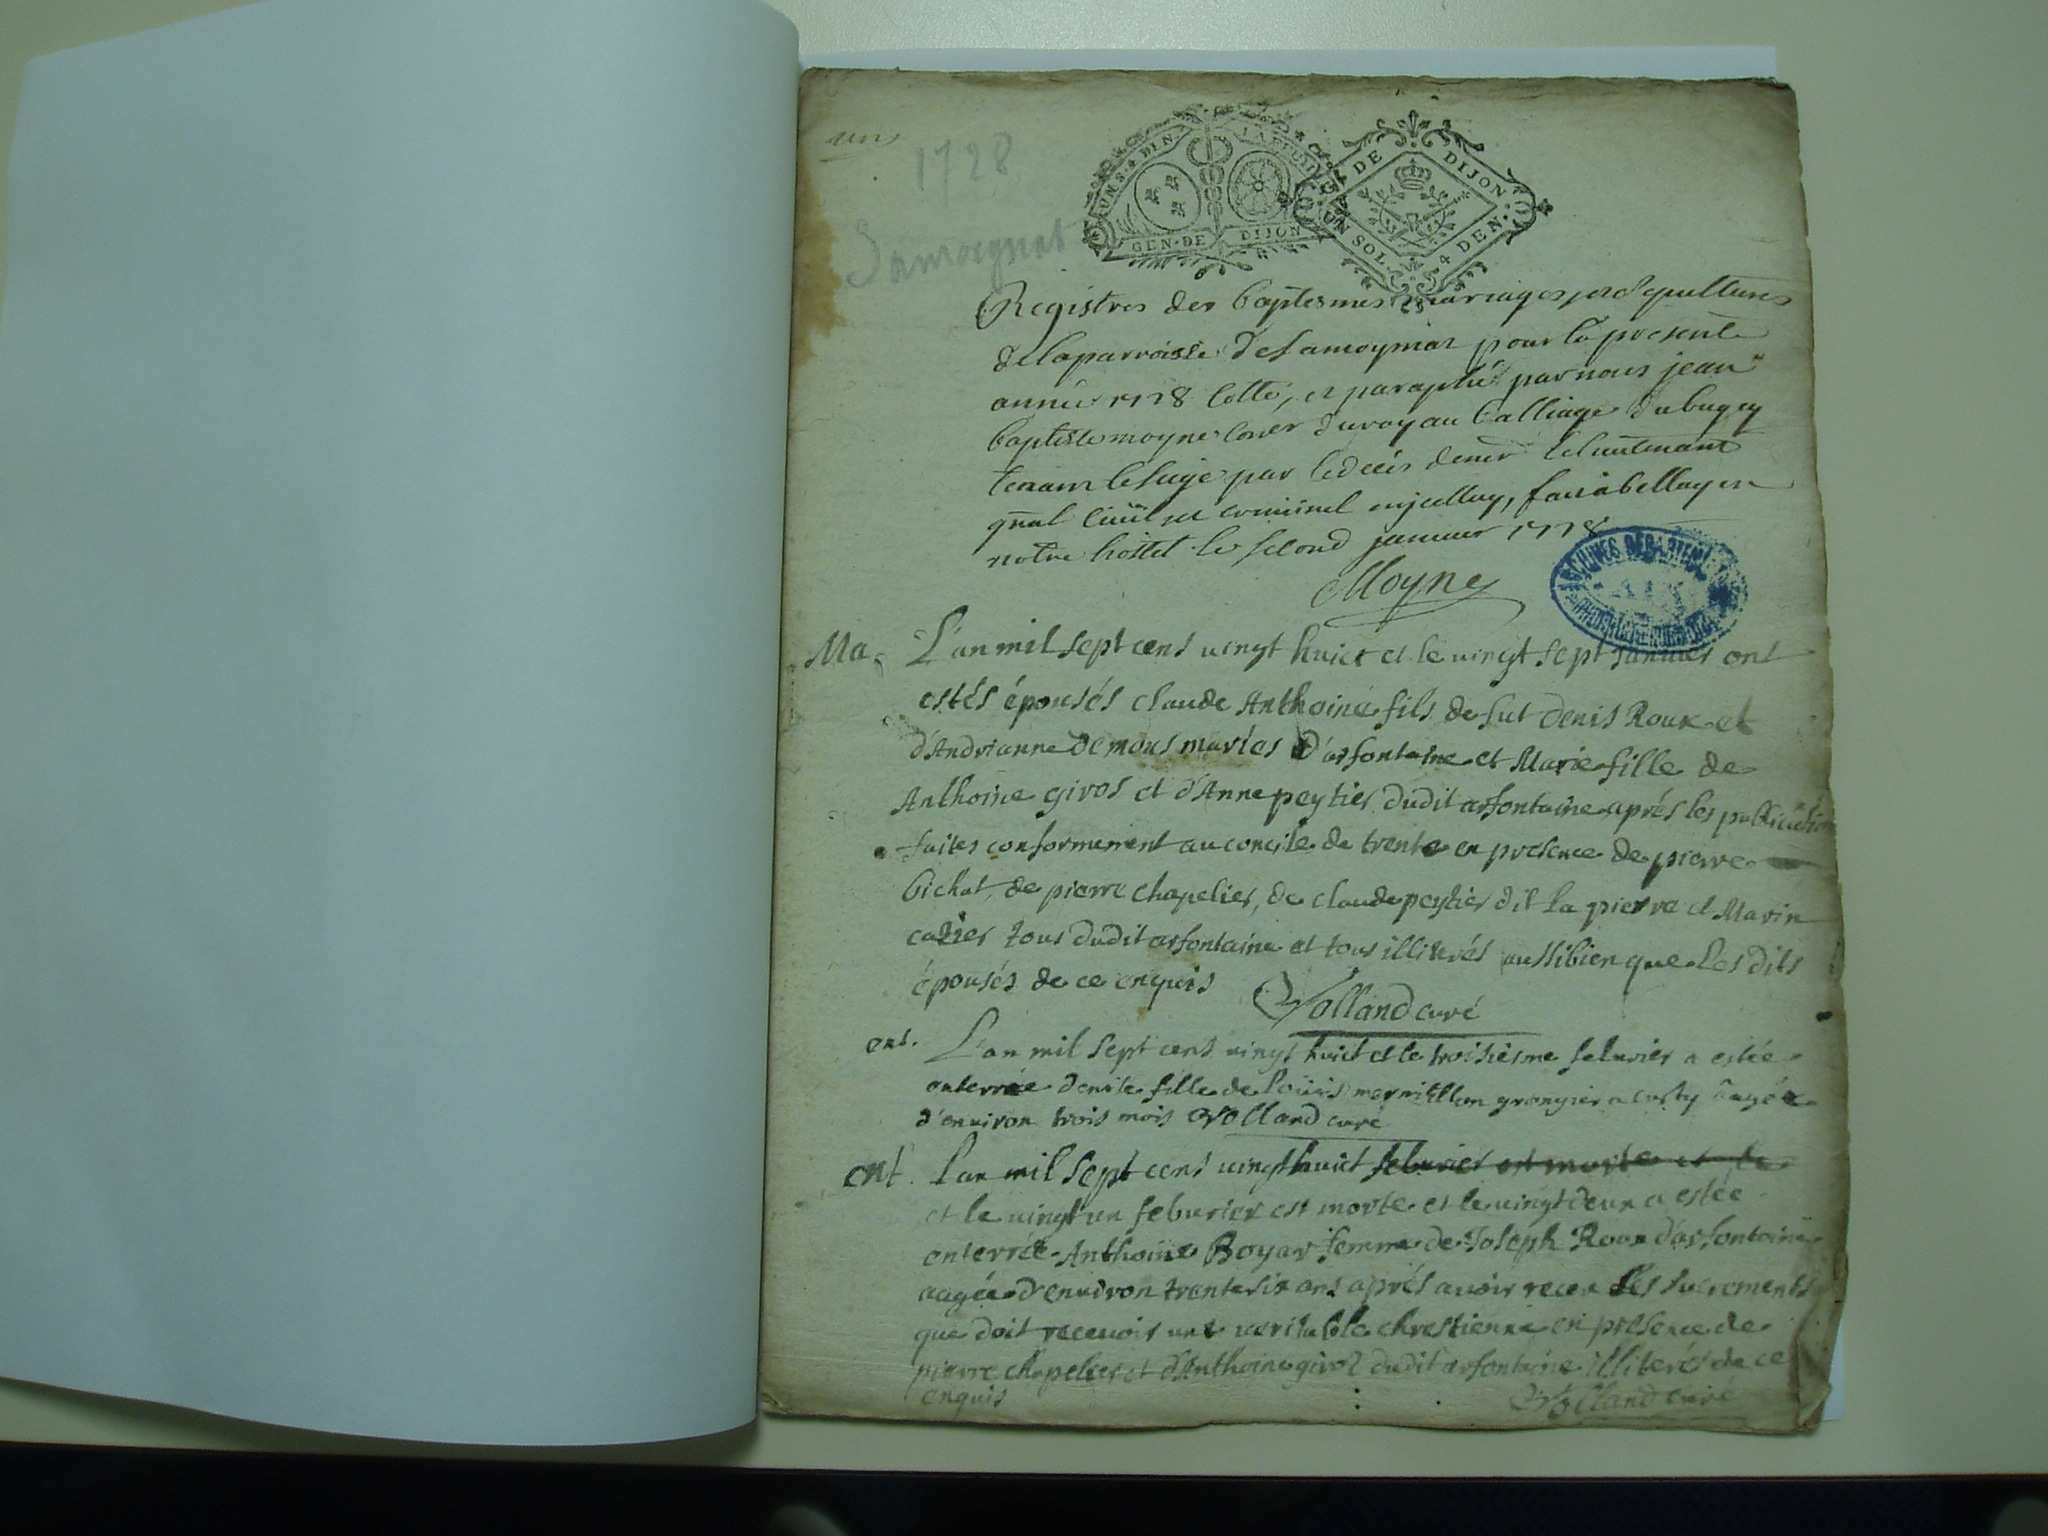 un
1728
Samognat
UN. S. 4 DEN. LA FEUILLE
GEN. DE DIJON
G. DE DIJON
UN SOL. 4 DEN.
Registres des baptesmes mariages et sepultures
de la parroisse de Samoyniaz pour la presente
année 1728 cotté, et paraphé par nous jean
baptiste moyne coner du roy au balliage du bugey
tenant le siege par le deces de mr le lieutenant
gnal civil et criminel enjcelluy, fait a belley en
notre hostel le second janvier 1728
Moyne
ARCHIVES DÉPARTEM
Ma. L'an mil sept cens vingt huict et le vingt sept Janvier ont
estés épousés claude Anthoine fils de fut Denis Roux et
d'Andrianne Demons mariés d'arfontaine et Marie fille de
Anthoine givos et d'Anne peytier dudit arfontaine aprés les publication
faites conformement au concile de trente en presence de pierre
bichat, de pierre chapelier, de claude peytier dit la pierre et Marin
tous dudit arfontaine et tous illiterés aussi bien que Les dits
épousés de ce enquis Volland curé
ent. L'an mil sept cens vingt huict et le troisiesme febvrier a estée
enterrée denise fille de Loüis mermillon grangier a aagée
d'environ trois mois Volland curé
ent. L'an mil sept cens vingt huict febvrier est morte et le
et le vingt un febvrier est morte et le vingt deux a estée
enterrée Anthoine Boyar femme de Joseph Roux d'arfontaine
aagée d'environ trente six ans aprés avoir receu Les sacrements
que doit recevoir une veritable chrestienne en presence de
pierre chapelier et d'Anthoine givos dudit arfontaine illiterés de ce
enquis Volland curé